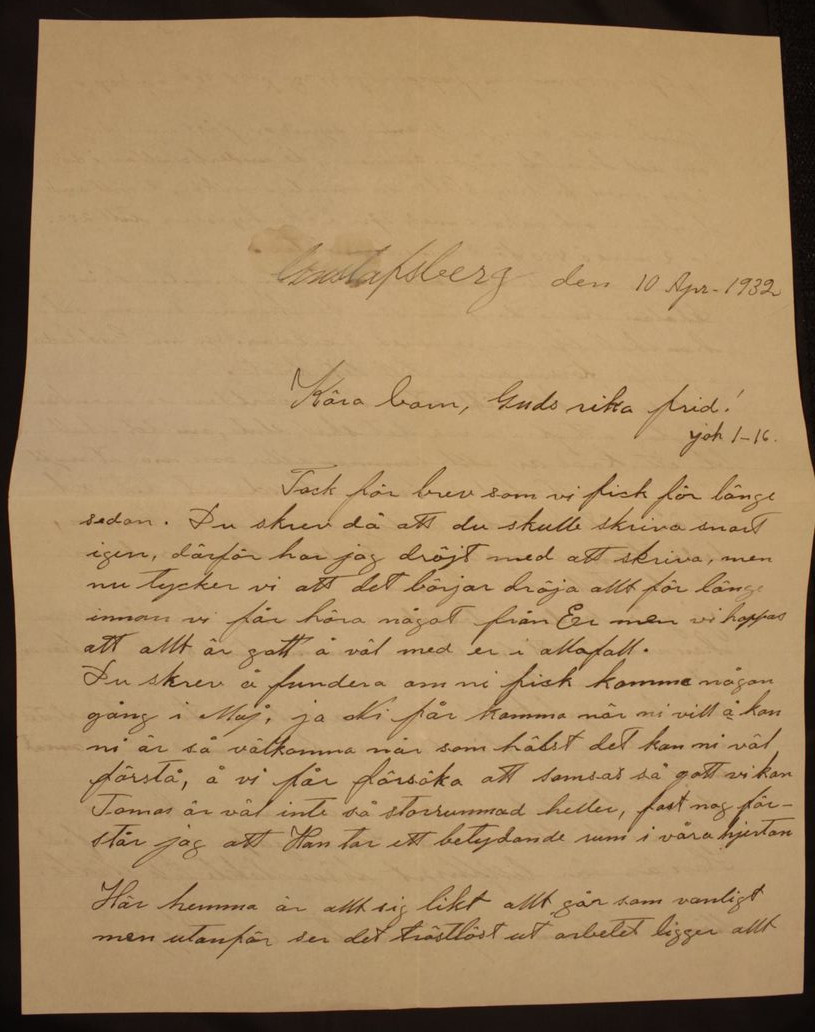 Gustafsberg den 10 Apr - 1932
Kära barn, Guds rika frid!
joh 1-16.
Tack för brev som vi fick för länge
sedan. Du skrev då att du skulle skriva snart
igen, därför har jag dröjt med att skriva, men
nu tycker vi att det börjar dröja allt för länge
innan vi får höra något från Er men vi hoppas
att allt är gott å väl med er i allafall.
Du skrev å fundera om ni fick komma någon
gång i Maj, ja Ni får komma när ni vill å kan
ni är så välkomna när som hälst det kan ni väl
förstå, å vi får försöka att samsas så gott vi kan
Tomas är väl inte så storrummad heller, fast nog för-
står jag att Han tar ett betydande rum i våra hjertan
Här hemma är allt sig likt allt går som vanligt
men utanför ser det tröstlöst ut arbetet ligger allt